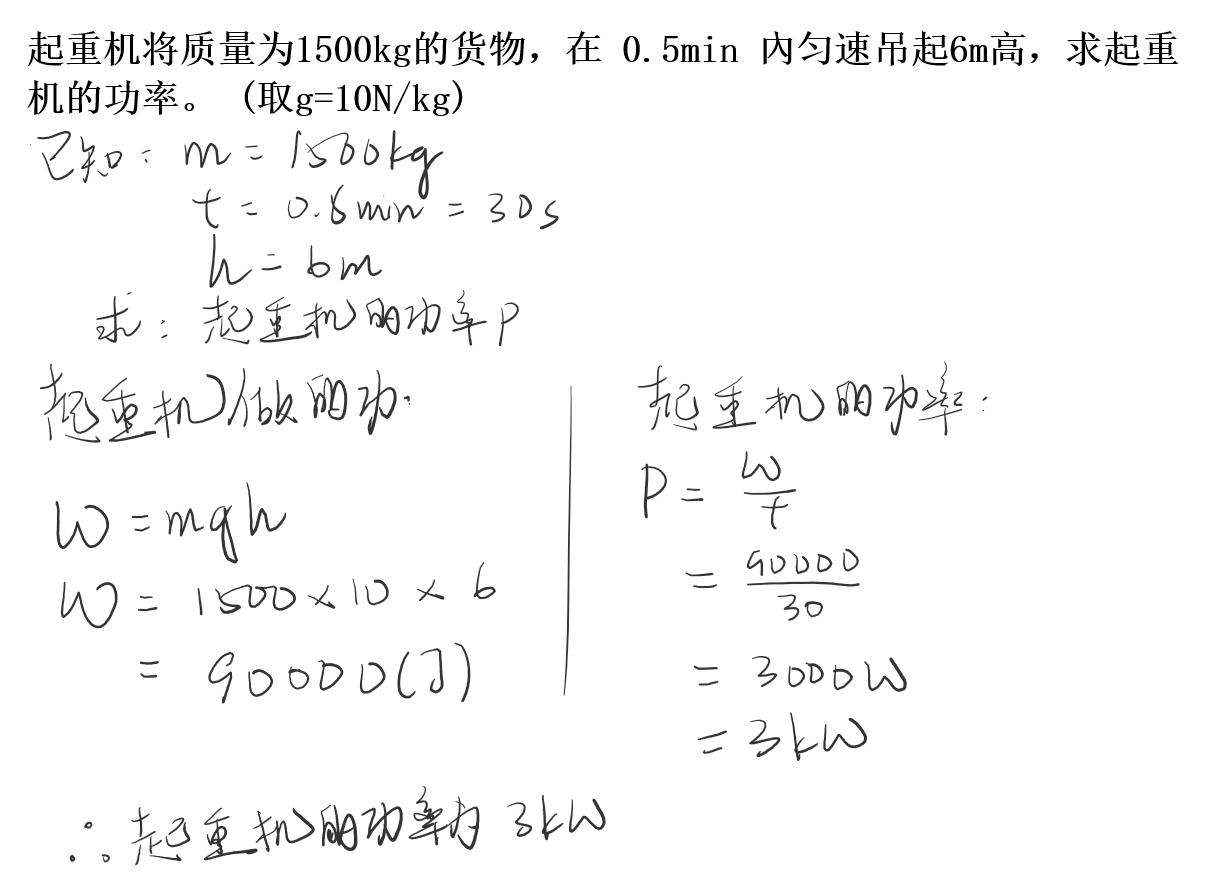 起重机将质量为1500kg的货物，在 0.5min 内匀速吊起6m高，求起重
机的功率。 (取g=10N/kg)
已知：m=1500kg
t=0.5min=30s
h=6m
求：起重机的功率P
起重机做的功：
W=mgh
W=1500×10×6
=90000(J)
起重机的功率：
P=W/t
=90000/30
=3000W
=3kW
∴起重机的功率为3kW